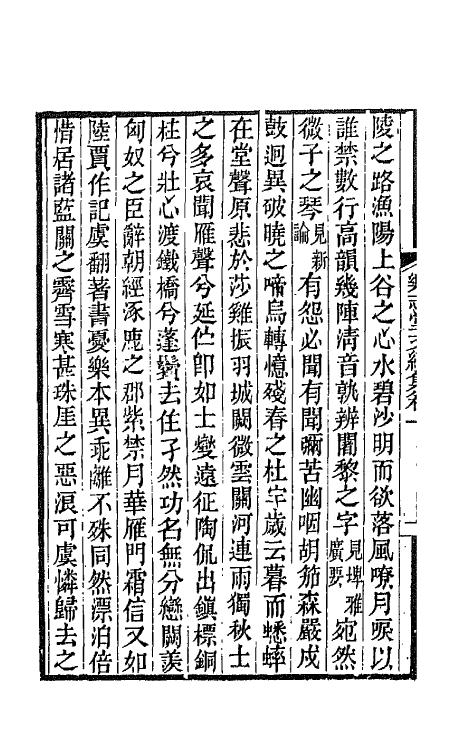 陵之路漁陽上谷之心水碧沙明而欲落風嘹月唳以
誰禁數行高韻幾陣清音孰辨闍黎之字見埤雅廣要宛然
微子之琴見新論有怨必聞有聞彌苦幽咽胡笳森嚴戍
鼓迥異破曉之啼烏轉憶殘春之杜宇歲云暮而蟋蟀
在堂聲原悲於莎雞振羽城闕微雲關河連雨獨秋士
之多哀聞雁聲兮延伫即如士燮遠征陶侃出鎮標銅
柱兮壯心渡鐵橋兮蓬鬢去住孑然功名無分戀闕羨
匈奴之臣辭朝經涿鹿之郡紫禁月華雁門霜信又如
陸賈作記虞翻著書憂樂本異乖離不殊同然漂泊倍
惜居諸藍關之霽雪寒甚珠厓之惡浪可虞憐歸去之